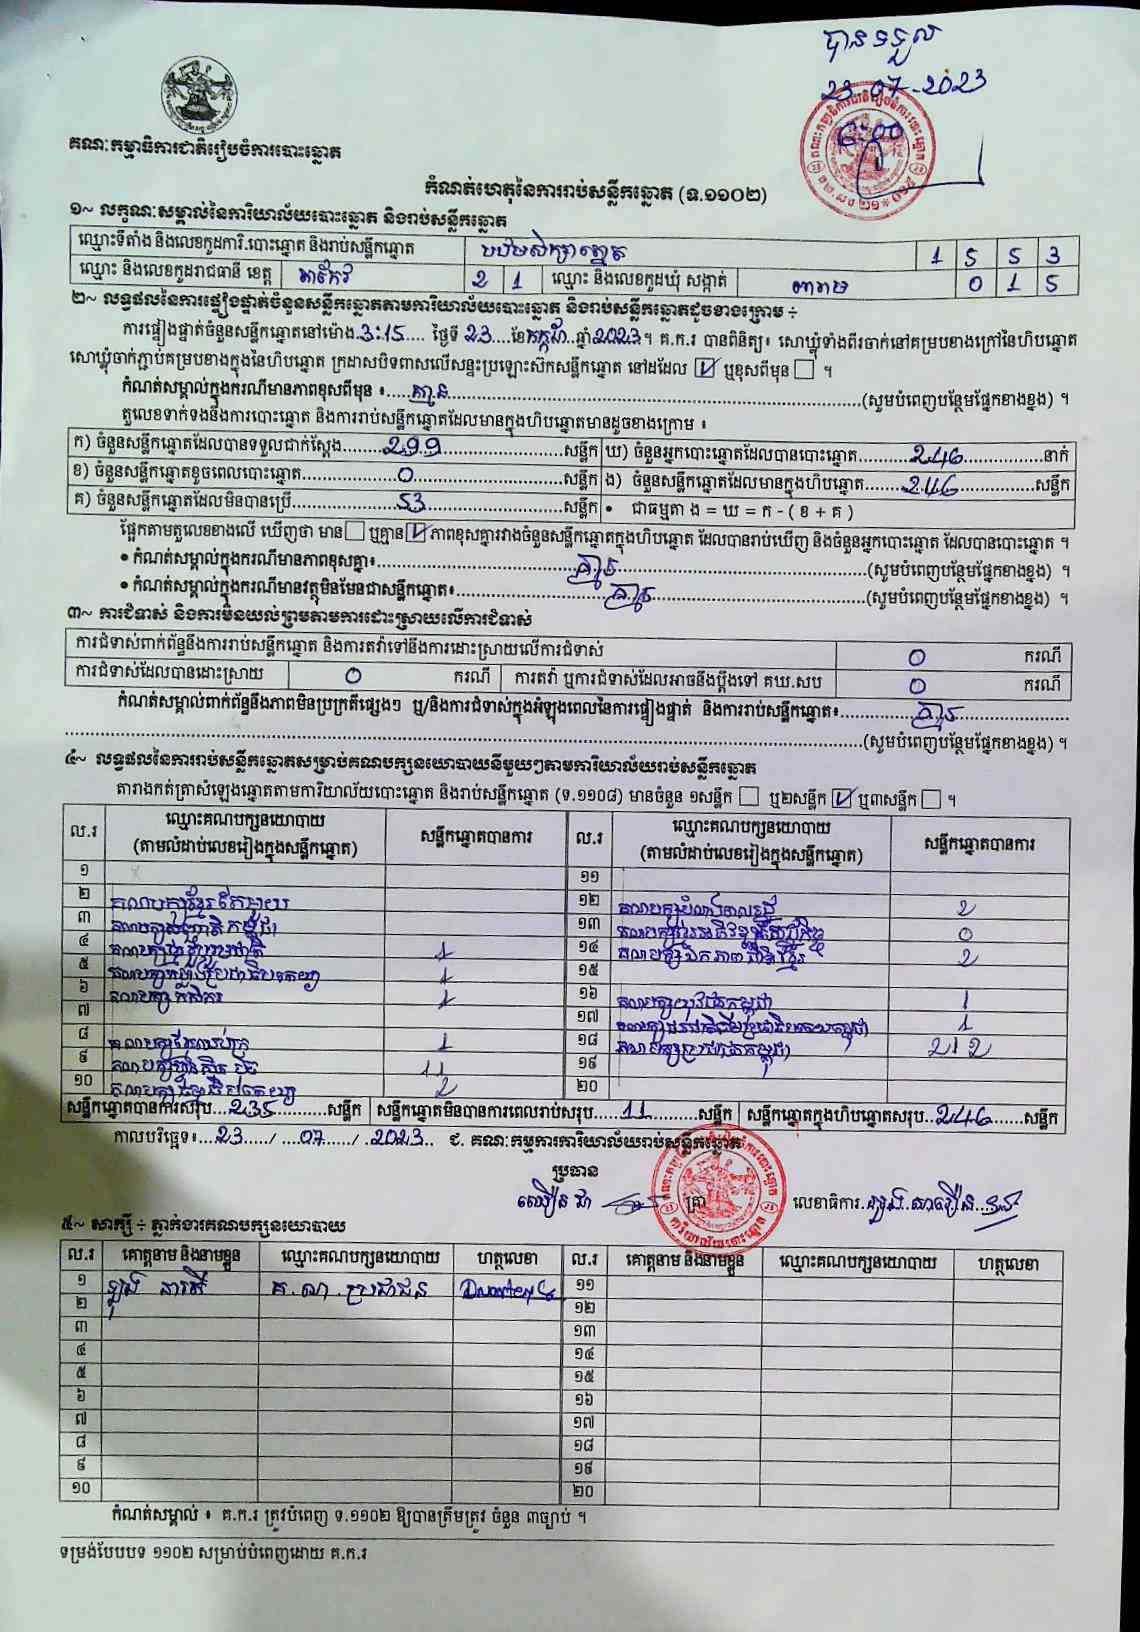 បានទទួល
23-07-2023
គណៈកម្មាធិការជាតិរៀបចំការបោះឆ្នោត
កំណត់ហេតុនៃការរាប់សន្លឹកឆ្នោត (ទ.១១០២)
១~ លក្ខណៈសម្គាល់នៃការិយាល័យបោះឆ្នោត និងរាប់សន្លឹកឆ្នោត
ឈ្មោះទីតាំង និងលេខកូដការិ.បោះឆ្នោត និងរាប់សន្លឹកឆ្នោត 1 5 5 3
ឈ្មោះ និងលេខកូដរាជធានី ខេត្ត តាកែវ 2 1 ឈ្មោះ និងលេខកូដឃុំ សង្កាត់ 0 1 5
២~ លទ្ធផលនៃការផ្ទៀងផ្ទាត់ចំនួនសន្លឹកឆ្នោតតាមការិយាល័យបោះឆ្នោត និងរាប់សន្លឹកឆ្នោតដូចខាងក្រោម ÷
ការផ្ទៀងផ្ទាត់ចំនួនសន្លឹកឆ្នោតនៅម៉ោង 3:15 ថ្ងៃទី 23 ខែកក្កដា ឆ្នាំ 2023 ។ គ.ក.រ បានពិនិត្យ៖ សោឃ្លុំទាំងពីរចាក់នៅគម្របខាងក្រៅនៃហិបឆ្នោត
សោឃ្លុំចាក់ភ្ជាប់គម្របខាងក្នុងនៃហិបឆ្នោត ក្រដាសបិទពាសលើសន្ទះប្រឡោះស៊កសន្លឹកឆ្នោត នៅដដែល ☑ ឬខុសពីមុន ☐ ។
កំណត់សម្គាល់ក្នុងករណីមានភាពខុសពីមុន ៖ គ្មាន (សូមបំពេញបន្ថែមផ្នែកខាងខ្នង) ។
តួលេខទាក់ទងនឹងការបោះឆ្នោត និងការរាប់សន្លឹកឆ្នោតដែលមានក្នុងហិបឆ្នោតមានដូចខាងក្រោម ៖
ក) ចំនួនសន្លឹកឆ្នោតដែលបានទទួលជាក់ស្តែង 299 សន្លឹក ឃ) ចំនួនអ្នកបោះឆ្នោតដែលបានបោះឆ្នោត 246 នាក់
ខ) ចំនួនសន្លឹកឆ្នោតខូចពេលបោះឆ្នោត 0 សន្លឹក ង) ចំនួនសន្លឹកឆ្នោតដែលមានក្នុងហិបឆ្នោត 246 សន្លឹក
គ) ចំនួនសន្លឹកឆ្នោតដែលមិនបានប្រើ 53 សន្លឹក • ជាធម្មតា ង = ឃ = ក - ( ខ + គ )
ផ្អែកតាមតួលេខខាងលើ ឃើញថា មាន ☐ ឬគ្មាន ☑ ភាពខុសគ្នារវាងចំនួនសន្លឹកឆ្នោតក្នុងហិបឆ្នោត ដែលបានរាប់ឃើញ និងចំនួនអ្នកបោះឆ្នោត ដែលបានបោះឆ្នោត ។
• កំណត់សម្គាល់ក្នុងករណីមានភាពខុសគ្នា៖ គ្មាន (សូមបំពេញបន្ថែមផ្នែកខាងខ្នង) ។
• កំណត់សម្គាល់ក្នុងករណីមានវត្ថុមិនមែនជាសន្លឹកឆ្នោត៖ គ្មាន (សូមបំពេញបន្ថែមផ្នែកខាងខ្នង) ។
៣~ ការជំទាស់ និងការមិនយល់ព្រមតាមការដោះស្រាយលើការជំទាស់
ការជំទាស់ពាក់ព័ន្ធនឹងការរាប់សន្លឹកឆ្នោត និងការតវ៉ាទៅនឹងការដោះស្រាយលើការជំទាស់ 0 ករណី
ការជំទាស់ដែលបានដោះស្រាយ 0 ករណី ការតវ៉ា ឬការជំទាស់ដែលអាចនឹងប្តឹងទៅ គឃ.សប 0 ករណី
កំណត់សម្គាល់ពាក់ព័ន្ធនឹងភាពមិនប្រក្រតីផ្សេងៗ ឬ/និងការជំទាស់ក្នុងអំឡុងពេលនៃការផ្ទៀងផ្ទាត់ និងការរាប់សន្លឹកឆ្នោត៖ គ្មាន
(សូមបំពេញបន្ថែមផ្នែកខាងខ្នង) ។
៤~ លទ្ធផលនៃការរាប់សន្លឹកឆ្នោតសម្រាប់គណបក្សនយោបាយនីមួយៗតាមការិយាល័យរាប់សន្លឹកឆ្នោត
តារាងកត់ត្រាសំឡេងឆ្នោតតាមការិយាល័យបោះឆ្នោត និងរាប់សន្លឹកឆ្នោត (ទ.១១០៨) មានចំនួន ១សន្លឹក ☐ ឬ២សន្លឹក ☑ ឬ៣សន្លឹក ☐ ។
ល.រ ឈ្មោះគណបក្សនយោបាយ (តាមលំដាប់លេខរៀងក្នុងសន្លឹកឆ្នោត) សន្លឹកឆ្នោតបានការ ល.រ ឈ្មោះគណបក្សនយោបាយ (តាមលំដាប់លេខរៀងក្នុងសន្លឹកឆ្នោត) សន្លឹកឆ្នោតបានការ
១ ១១
២ គណបក្សខ្មែរតែមួយ ១២ 2
៣ ១៣ 0
៤ 1 ១៤ គណបក្សឯកភាពជាតិខ្មែរ 2
៥ 1 ១៥
៦ គណបក្សកសិករ 1 ១៦ គណបក្សយុវជនកម្ពុជា 1
៧ ១៧ 1
៨ 1 ១៨ គណបក្សប្រជាជនកម្ពុជា 212
៩ គណបក្សហ៊្វុនស៊ិនប៉ិច 11 ១៩
១០ គណបក្សធម្មាធិបតេយ្យ 2 ២០
សន្លឹកឆ្នោតបានការសរុប 235 សន្លឹក សន្លឹកឆ្នោតមិនបានការពេលរាប់សរុប 11 សន្លឹក សន្លឹកឆ្នោតក្នុងហិបឆ្នោតសរុប 246 សន្លឹក
កាលបរិច្ឆេទ៖ 23 / 07 / 2023 ជ. គណៈកម្មការការិយាល័យរាប់សន្លឹកឆ្នោត
ប្រធាន
ត្រា លេខាធិការ
៥~ សាក្សី ÷ ភ្នាក់ងារគណបក្សនយោបាយ
ល.រ គោត្តនាម និងនាមខ្លួន ឈ្មោះគណបក្សនយោបាយ ហត្ថលេខា ល.រ គោត្តនាម និងនាមខ្លួន ឈ្មោះគណបក្សនយោបាយ ហត្ថលេខា
១ គ.ណ.ប្រជាជន ១១
២ ១២
៣ ១៣
៤ ១៤
៥ ១៥
៦ ១៦
៧ ១៧
៨ ១៨
៩ ១៩
១០ ២០
កំណត់សម្គាល់ ៖ គ.ក.រ ត្រូវបំពេញ ទ.១១០២ ឱ្យបានត្រឹមត្រូវ ចំនួន ៣ច្បាប់ ។
ទម្រង់បែបបទ ១១០២ សម្រាប់បំពេញដោយ គ.ក.រ